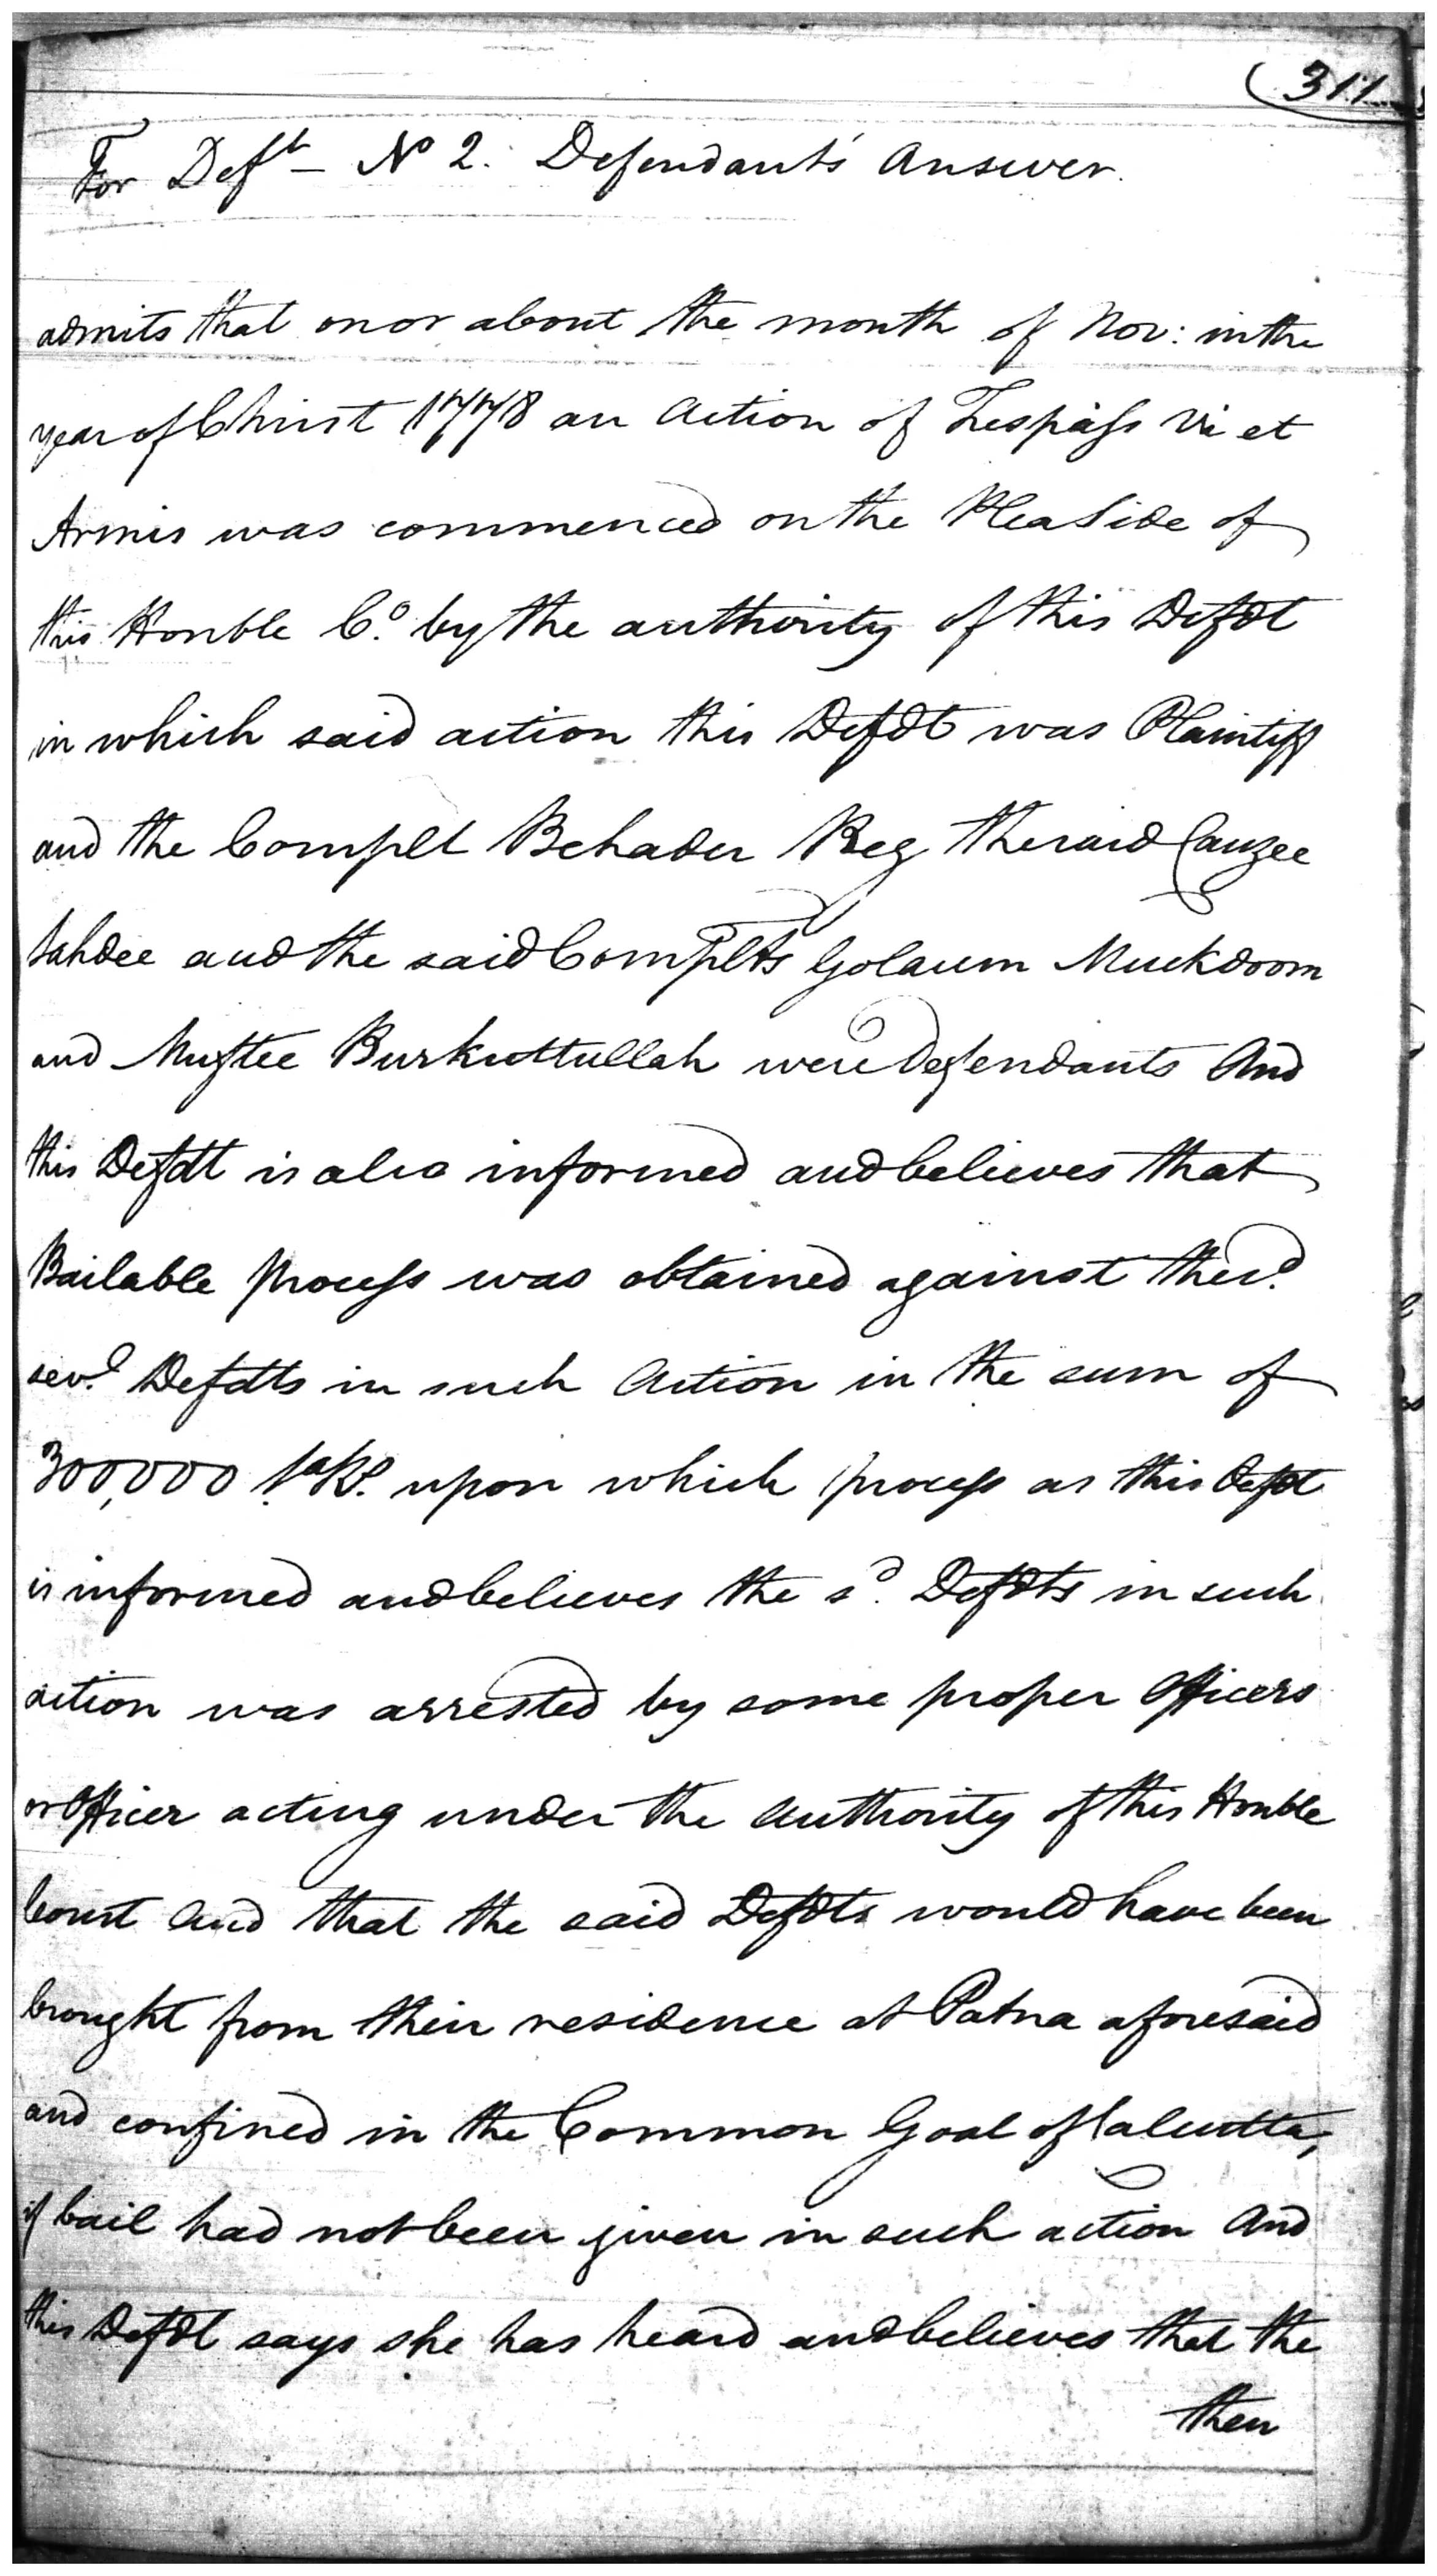 311
For Deft - No 2. Defendant's Answer.
admits that on or about the month of Nov: in the
year of Christ 1778 an Action of Trespass Vi et
Armis was commenced on the Plea Side of
this Honble Co. by the authority of this Defdt
in which said action this Defdt was Plaintiff
and the Complt Behader Beg the said Cauzee
Sahdee and the said Complts Golaum Muckdoom
and Muftee Burkuttullah were Defendants And
this Defdt is also informed and believes that
Bailable process was obtained against the sd.
sevl. Defdts in such Action in the sum of
300,000 Sa Rs. upon which process as this Defdt
is informed and believes the sd. Defdts in such
action was arrested by some proper Officers
or Officer acting under the Authority of this Honble
Court And that the said Defdts would have been
brought from their residence at Patna aforesaid
and confined in the Common Goal of Calcutta,
if bail had not been given in such action And
this Defdt says she has heard and believes that the
then